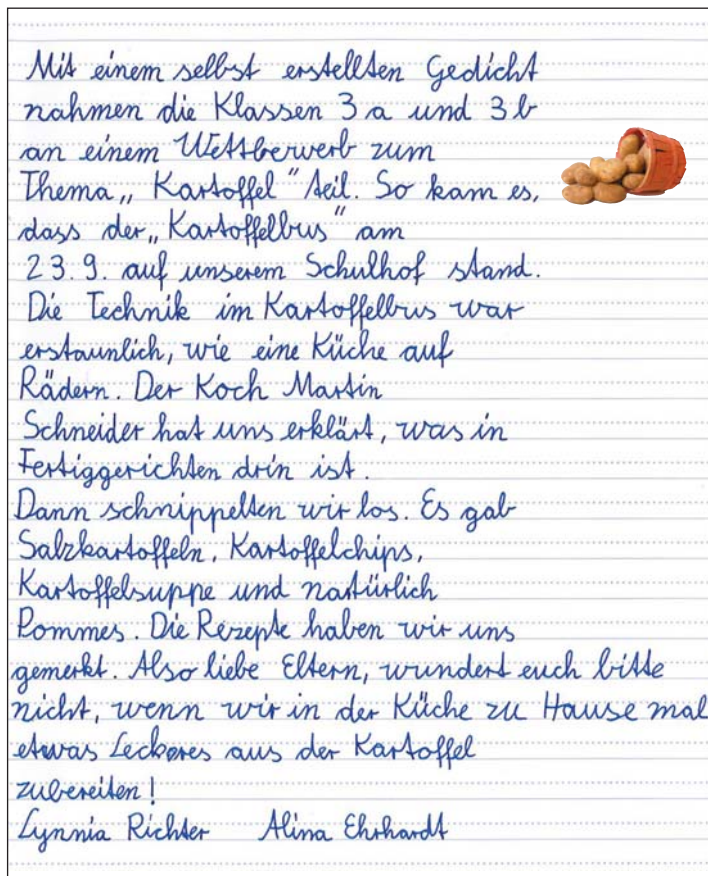 Mit einem selbst erstellten Gedicht
nahmen die Klassen 3a und 3b
an einem Wettberwerb zum
Thema „Kartoffel" teil. So kam es,
dass der „Kartoffelbus" am
23.9. auf unserem Schulhof stand.
Die Technik im Kartoffelbus war
erstaunlich, wie eine Küche auf
Rädern. Der Koch Martin
Schneider hat uns erklärt, was in
Fertiggerichten drin ist.
Dann schnippelten wir los. Es gab
Salzkartoffeln, Kartoffelchips,
Kartoffelsuppe und natürlich
Pommes. Die Rezepte haben wir uns
gemerkt. Also liebe Eltern, wundert euch bitte
nicht, wenn wir in der Küche zu Hause mal
etwas Leckeres aus der Kartoffel
zubereiten!
Lynnia Richter Alina Ehrhardt